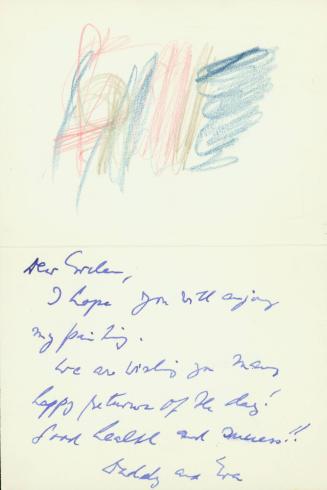 Dear
I hope you will enjoy
my painting.
We are wishing you many
happy returns of the day!
Good health and success!!
Daddy and Eva